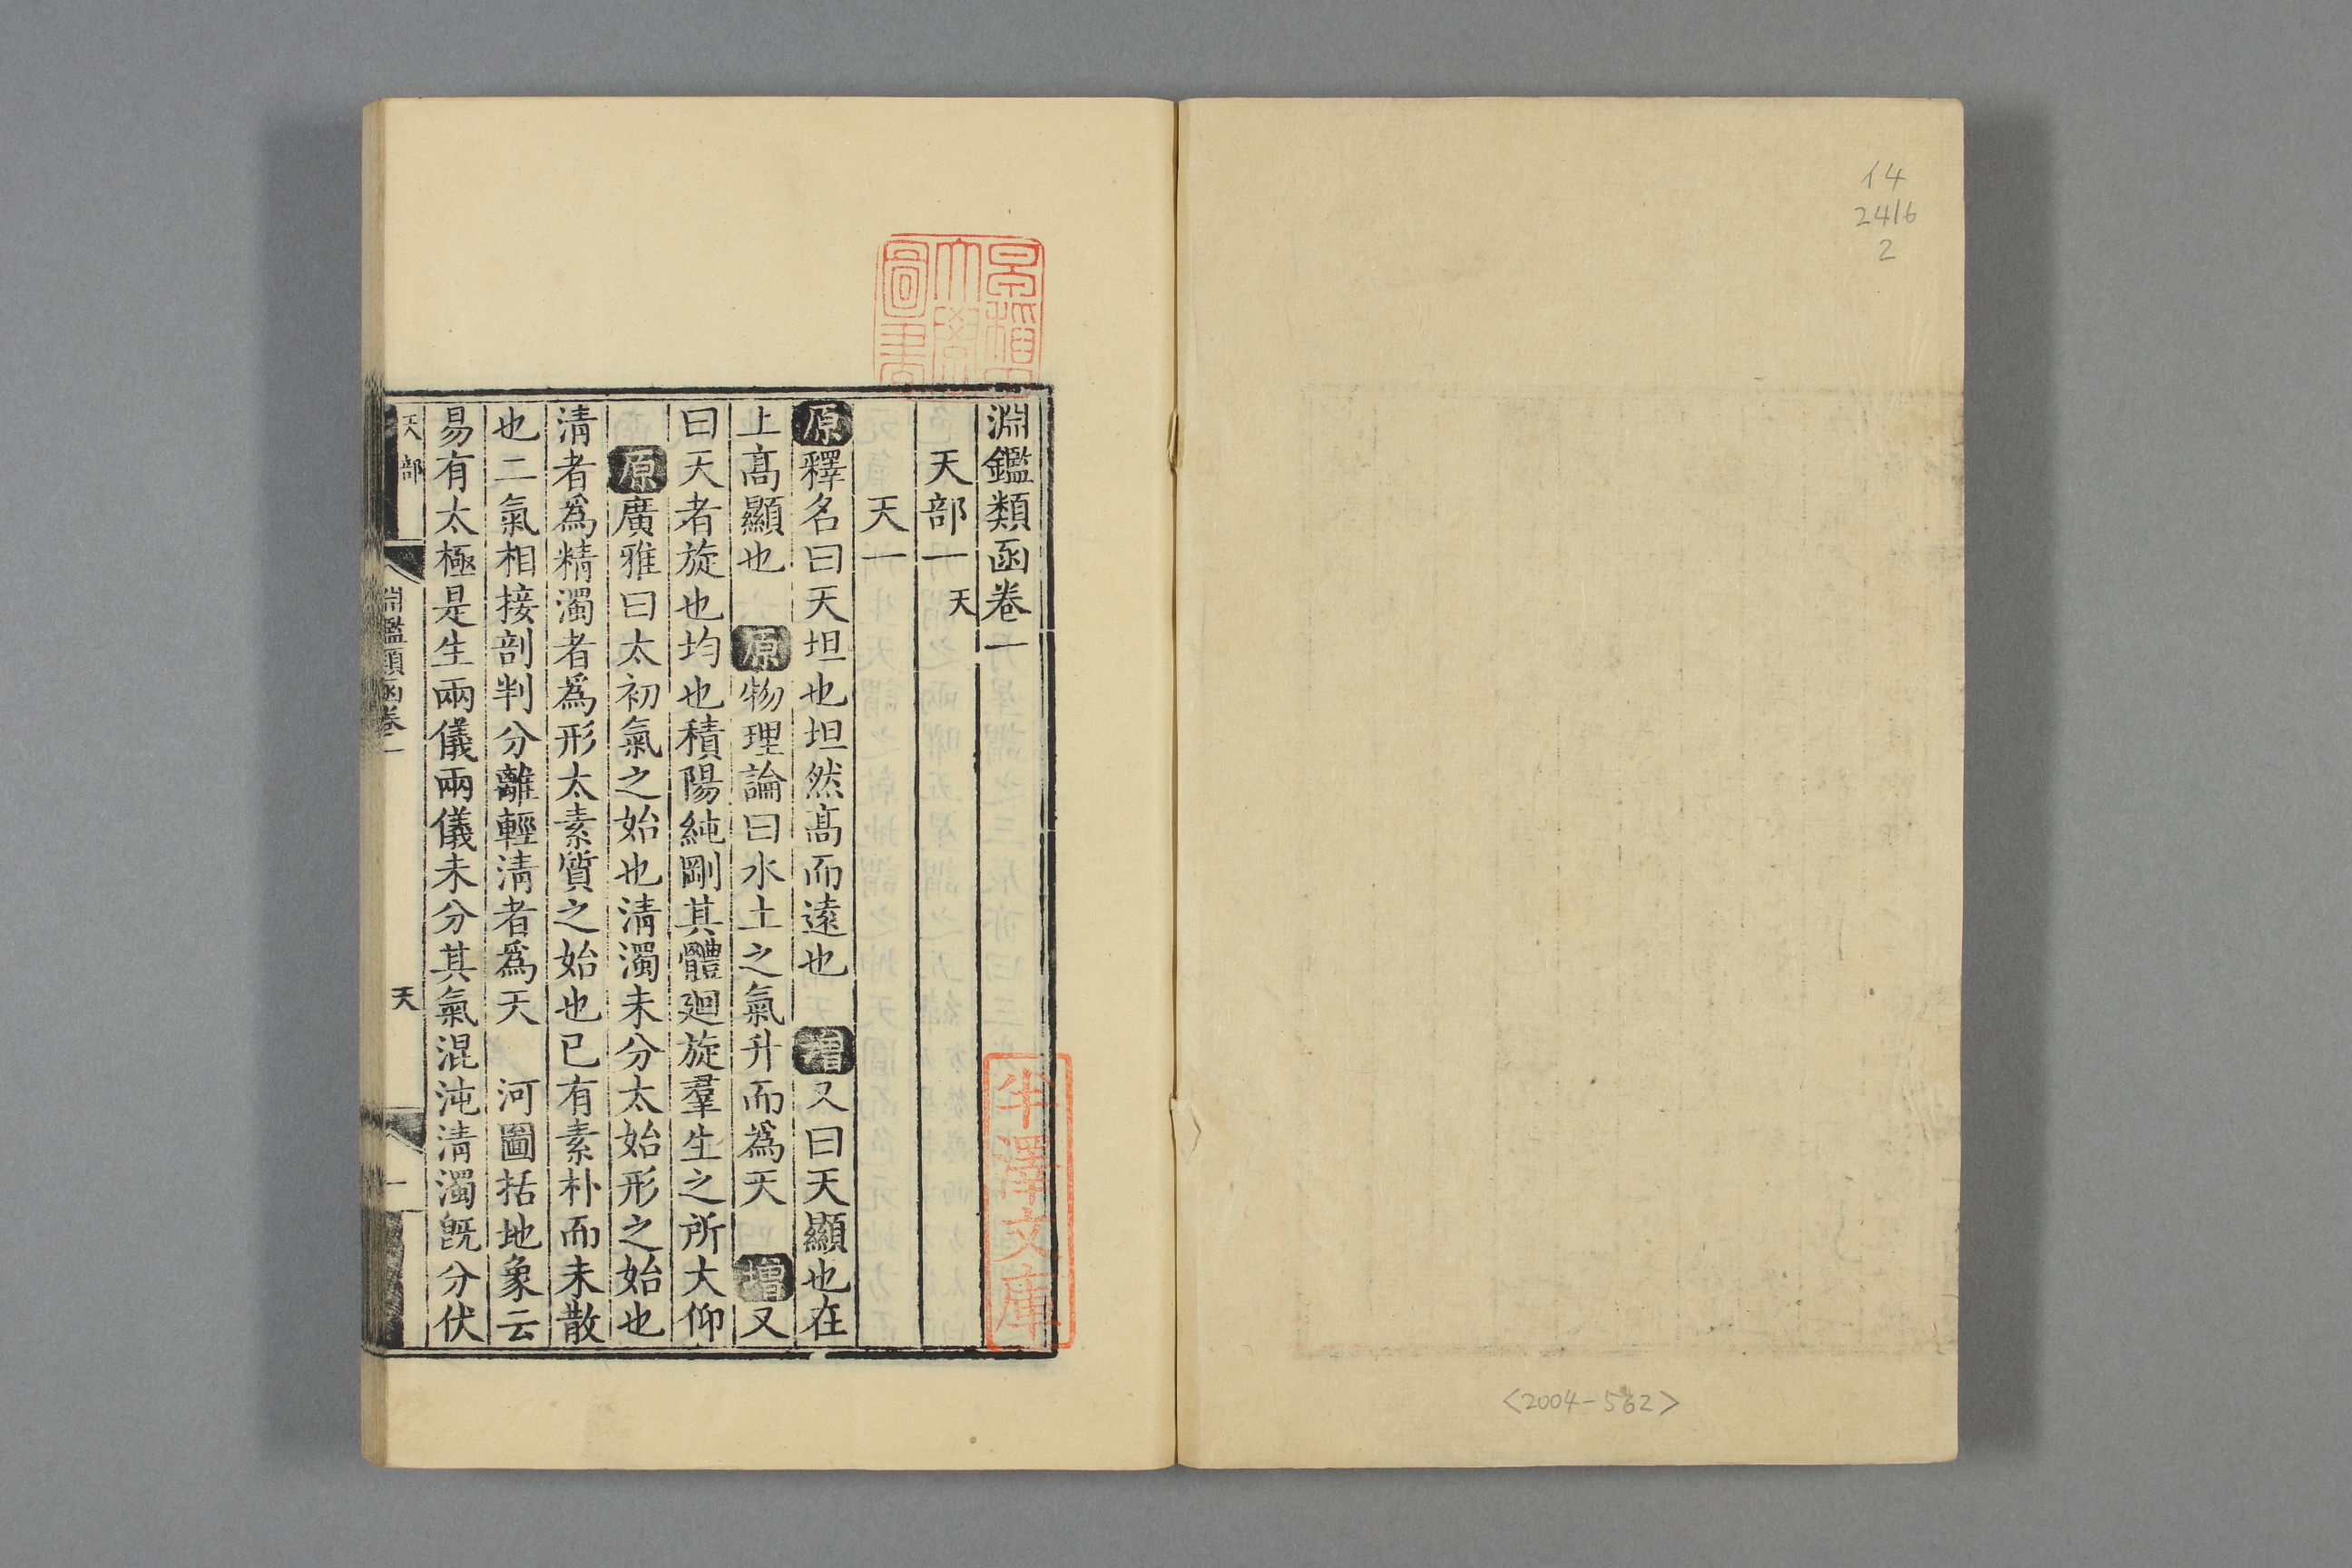 14
2416
2
<2004-562>
淵鑑類函卷一
天部一 天
天一
原釋名曰天坦也坦然髙而逺也 增又曰天顯也在
上髙顯也 原物理論曰水土之氣升而爲天 增又
曰天者旋也均也積陽純剛其體廻旋羣生之所大仰
原廣雅曰太初氣之始也清濁未分太始形之始也
清者爲精濁者爲形太素質之始也已有素朴而未散
也二氣相接剖判分離輕清者爲天 河圖括地象云
易有太極是生兩儀兩儀未分其氣混沌清濁旣分伏
天部
淵鑑類函卷一
天
一
半澤文庫